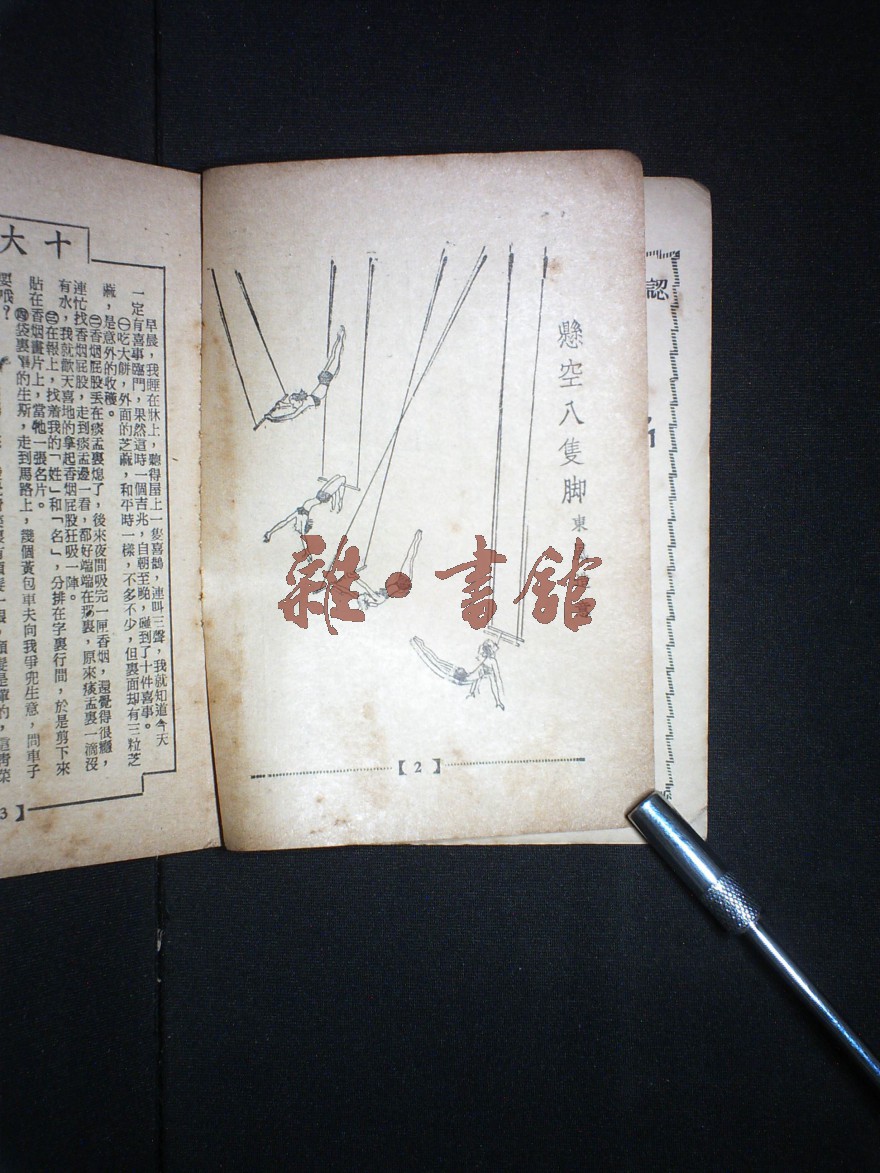 認
懸空八隻脚
東
雜·書館
【2】
十大
早晨，我睡在牀上，聽得屋上一隻喜鵲，連叫三聲，我就知道今天
一定有喜事臨門，果然這時一個吉兆，自朝至晚，碰到了十件喜事。
㊀吃大餅，外面的芝蔴，和平時一樣，不多不少，但裏面却有三粒芝
蔴，是意外的收穫。
㊁香烟屁股丢在痰盂裏熄了，後來夜間吸完一匣香烟，還覺得很癮，
連忙找香烟屁股，走到痰盂邊一看，都好端端在那裏，原來痰盂裏一滴沒
有水，我就歡天喜地的拿起香烟屁股狂吸一陣。
㊂在報上，找着我的「姓」和「名」，分排在字裏行間，於是剪下來
貼在香烟畫片上，當牠一張名片。
袋裏的生斯，走到馬路上，幾個黃包車夫向我爭兜生意，問車子
要哦？
3】